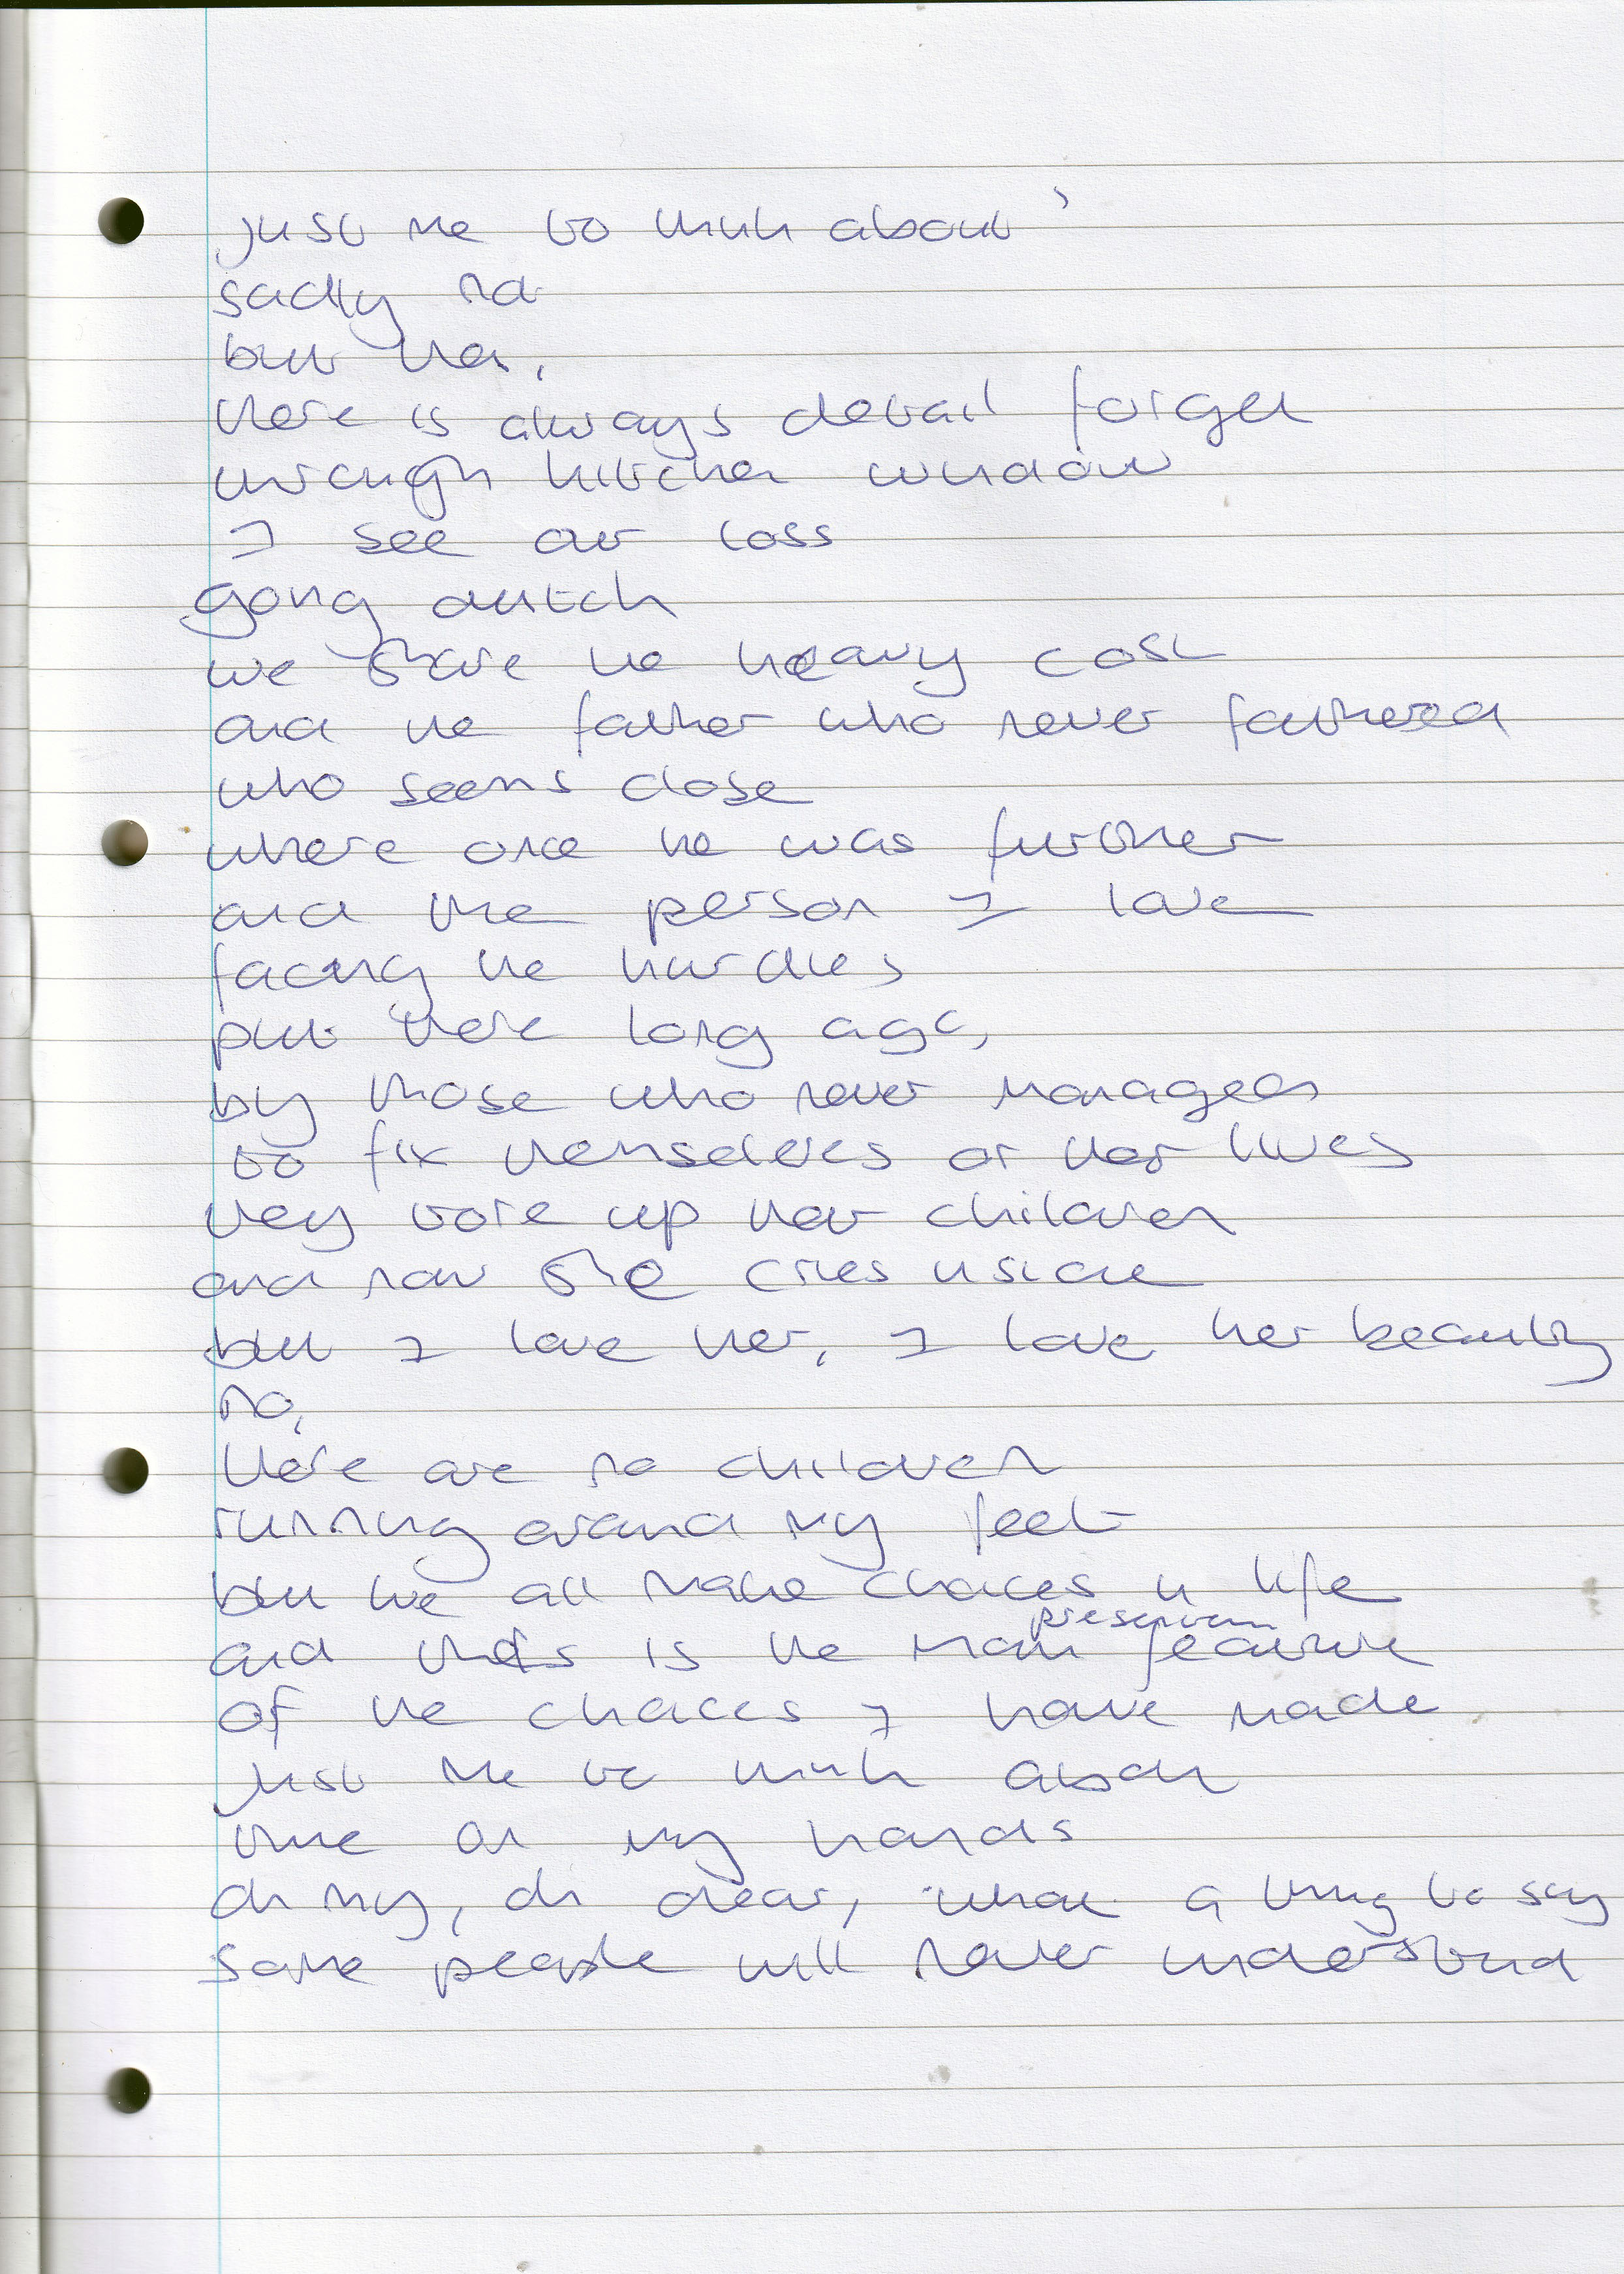 just me to think about'
sadly not
but then,
there is always detail forget
through kitchen window
I see our loss
going dutch
we share the heavy cost
and the father who never fathered
who seems close
where once he was further
and the person I love
facing the hurdles
put there long ago,
by those who never managed
to fix themselves or their lives
they tore up their children
and now she cries inside
but I love her, I love her beauty
no,
there are no children
running around my feet
but we all make choices in life
presents
and this is the main feature
of the choices I have made
just me to think about
time on my hands
oh my, oh dear, what a thing to say
some people will never understand